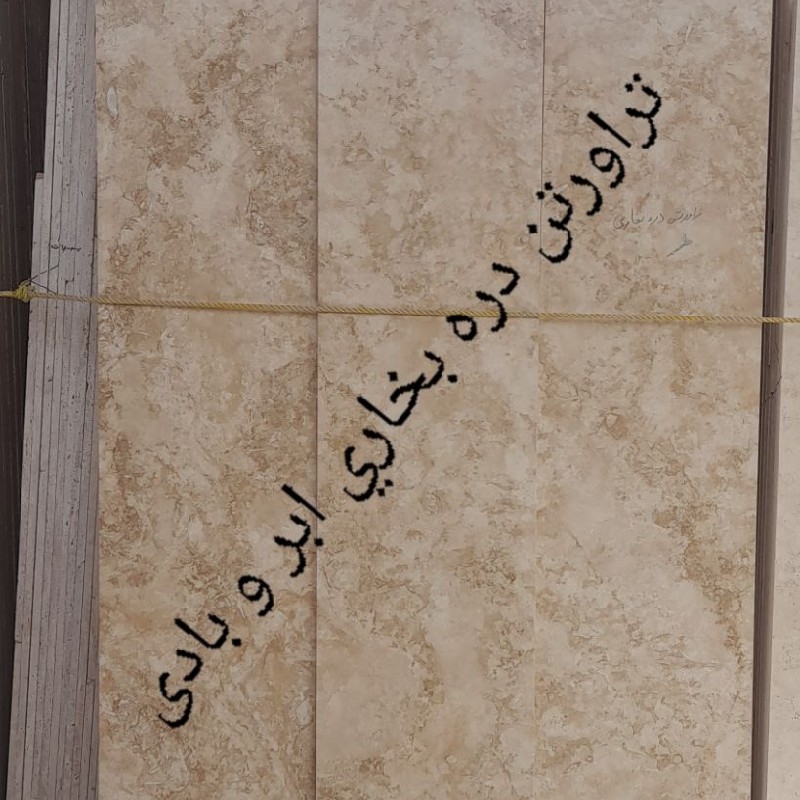 تراورتن دره بخاري ابد و بادی
تراورتن دره بخاری